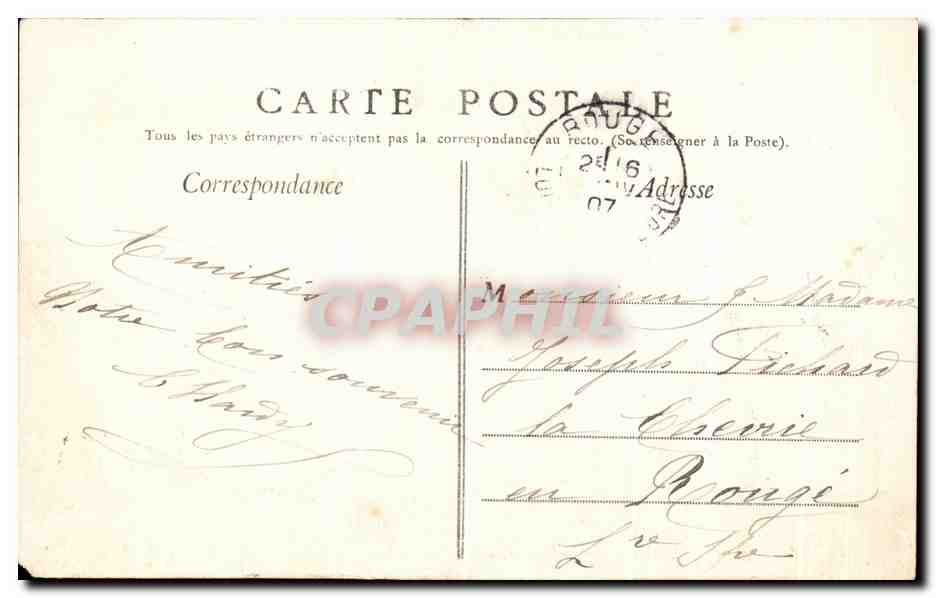 CARTE POSTALE
Tous les pays étrangers n'acceptent pas la correspondance au recto. (Se renseigner à la Poste).
Correspondance
Adresse
ROUGÉ
2E 16
07
Amitiés
Votre bon souvenir
Hardy
CPAPHIL
Monsieur & Madame
Joseph Pichard
la Chevrie
en Rougé
Lre Infre